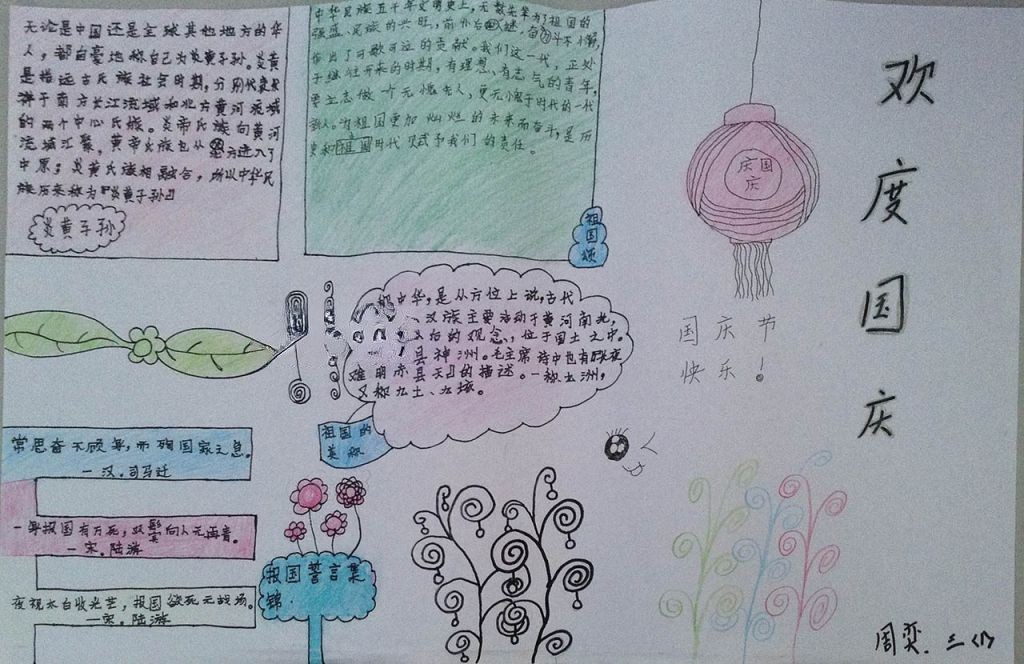 无论是中国还是全球其他地方的华
人，都自豪地称自己为炎黄子孙。炎黄
是指远古氏族社会时期，分别代表发
源于南方长江流域和北方黄河流域
的两个中心氏族。炎帝氏族向黄河
流域汇聚，黄帝氏族也从北方进入了
中原；炎黄氏族相融合，所以中华民
族历来称为『炎黄子孙』
炎黄子孙
中华民族五千年文明史上，无数先辈为了祖国的
强盛、民族的兴旺，前外后继，奋力斗不懈，
作出了可歌可泣的贡献。我们这一代，正处
于继往开来的时期，有理想、有志气的青年，
要立志做一个无愧先人，更无愧于时代的一代
新人。为祖国更加灿烂的未来而奋斗，是历
史和祖国时代赋予我们的责任。
祖国颂
庆国
庆
欢度国庆
国庆节
快乐！
中华，是从方位上说，古代
汉族主要活动于黄河南北，
的观念，位于国土之中。
县神洲。毛主席诗中也有『长夜
难明赤县天』的描述。一称九洲，
又称九土、九垓。
祖国的
美称
常思奋不顾身，而殉国家之急。
—汉.司马迁
一身报国有万死，双鬓向人无再青。
—宋.陆游
夜视太白收光芒，报国欲死无战场。
—宋.陆游
报国誓言集
锦.
周奕.三